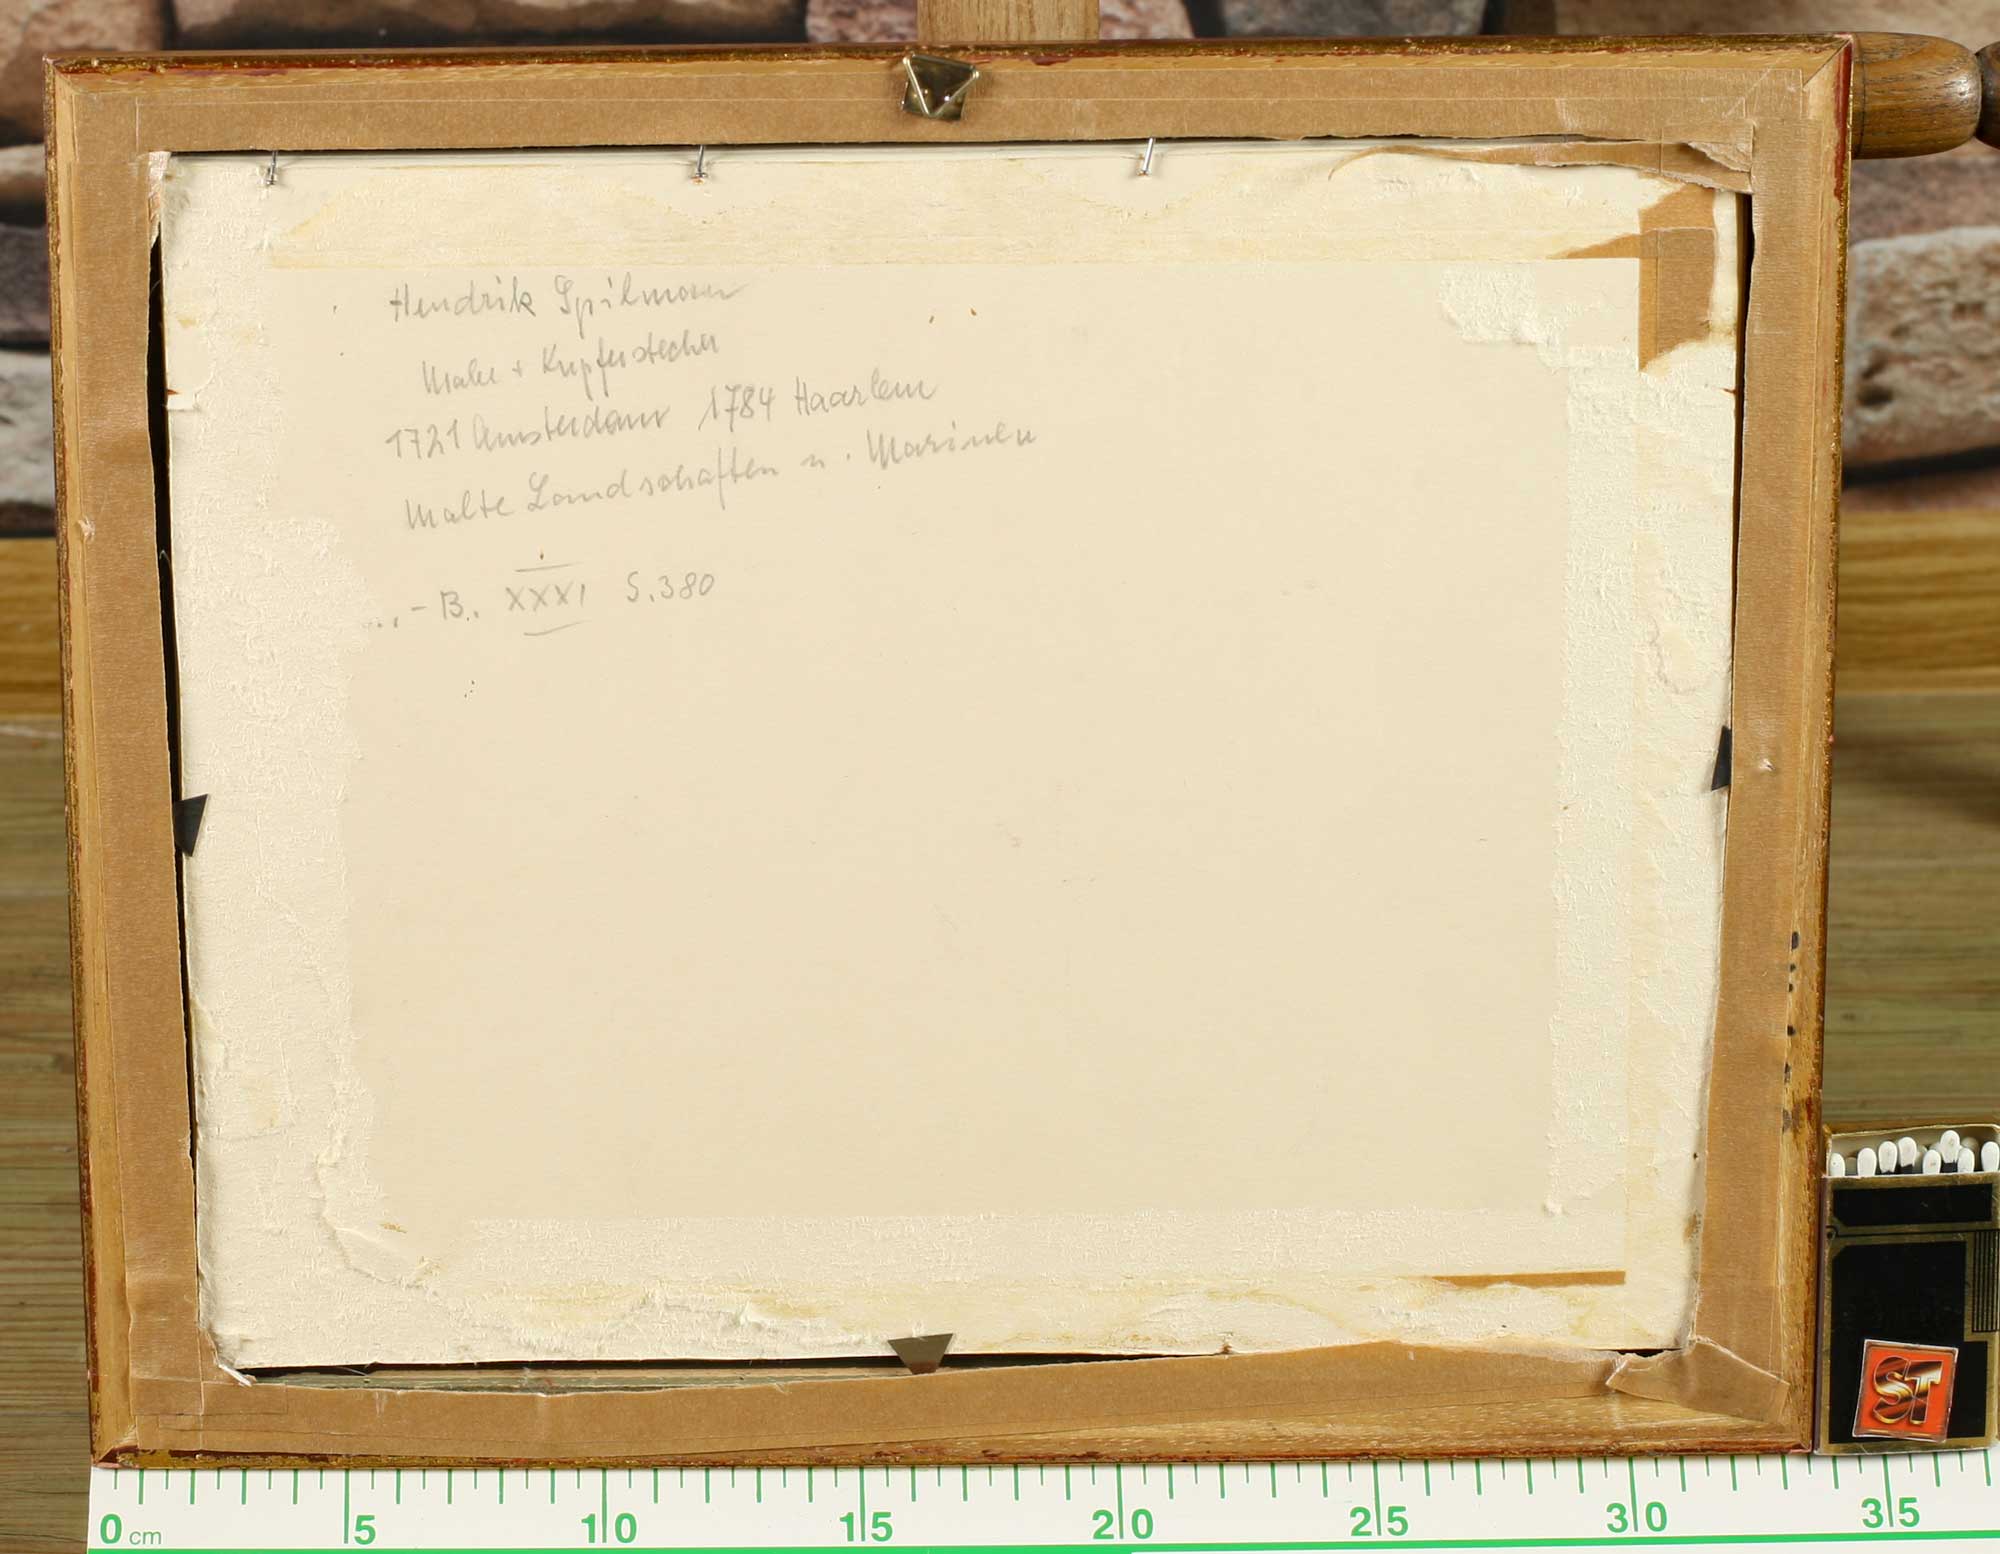 Hendrik Spilmann
Maler + Kupferstecher
1721 Amsterdam 1784 Haarlem
Malte Landschaften u. Marinen
- B. XXXI S.380
ST
0 cm 5 10 15 20 25 30 35